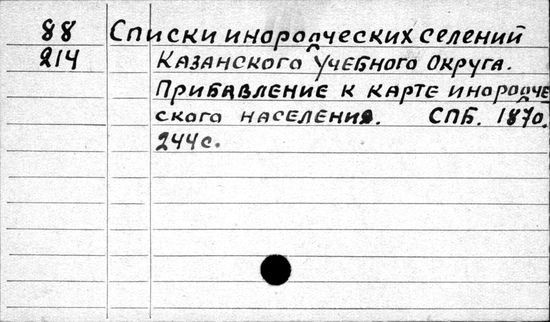 88 Списки инородческих селений
214 Казанского Учебного Округа.
Прибавление к карте инородче
ского населения. СПБ. 1870.
244с.